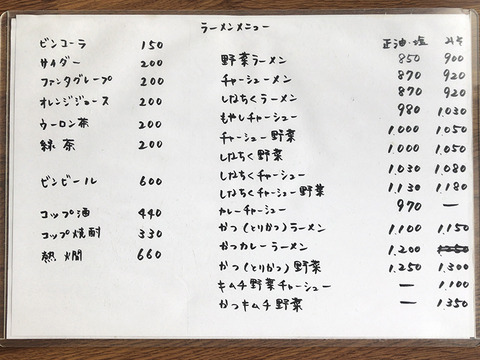 ラーメンメニュー
ビンコーラ 150
サイダー 200
ファンタグレープ 200
オレンジジュース 200
ウーロン茶 200
緑茶 200
ビンビール 600
コップ酒 440
コップ焼酎 330
熱燗 660
正油・塩 みそ
野菜ラーメン 850 900
チャーシューメン 870 920
しなちくラーメン 870 920
もやしチャーシュー 980 1,030
チャーシュー野菜 1,000 1,050
しなちく野菜 1,000 1,050
しなちくチャーシュー 1,030 1,080
しなちくチャーシュー野菜 1,130 1,180
カレーチャーシュー 970 ー
かつ(とりかつ)ラーメン 1,100 1,150
かつカレーラーメン 1,200
かつ(とりかつ)野菜 1,250 1,300
キムチ野菜チャーシュー ー 1,100
かつキムチ野菜 ー 1,350